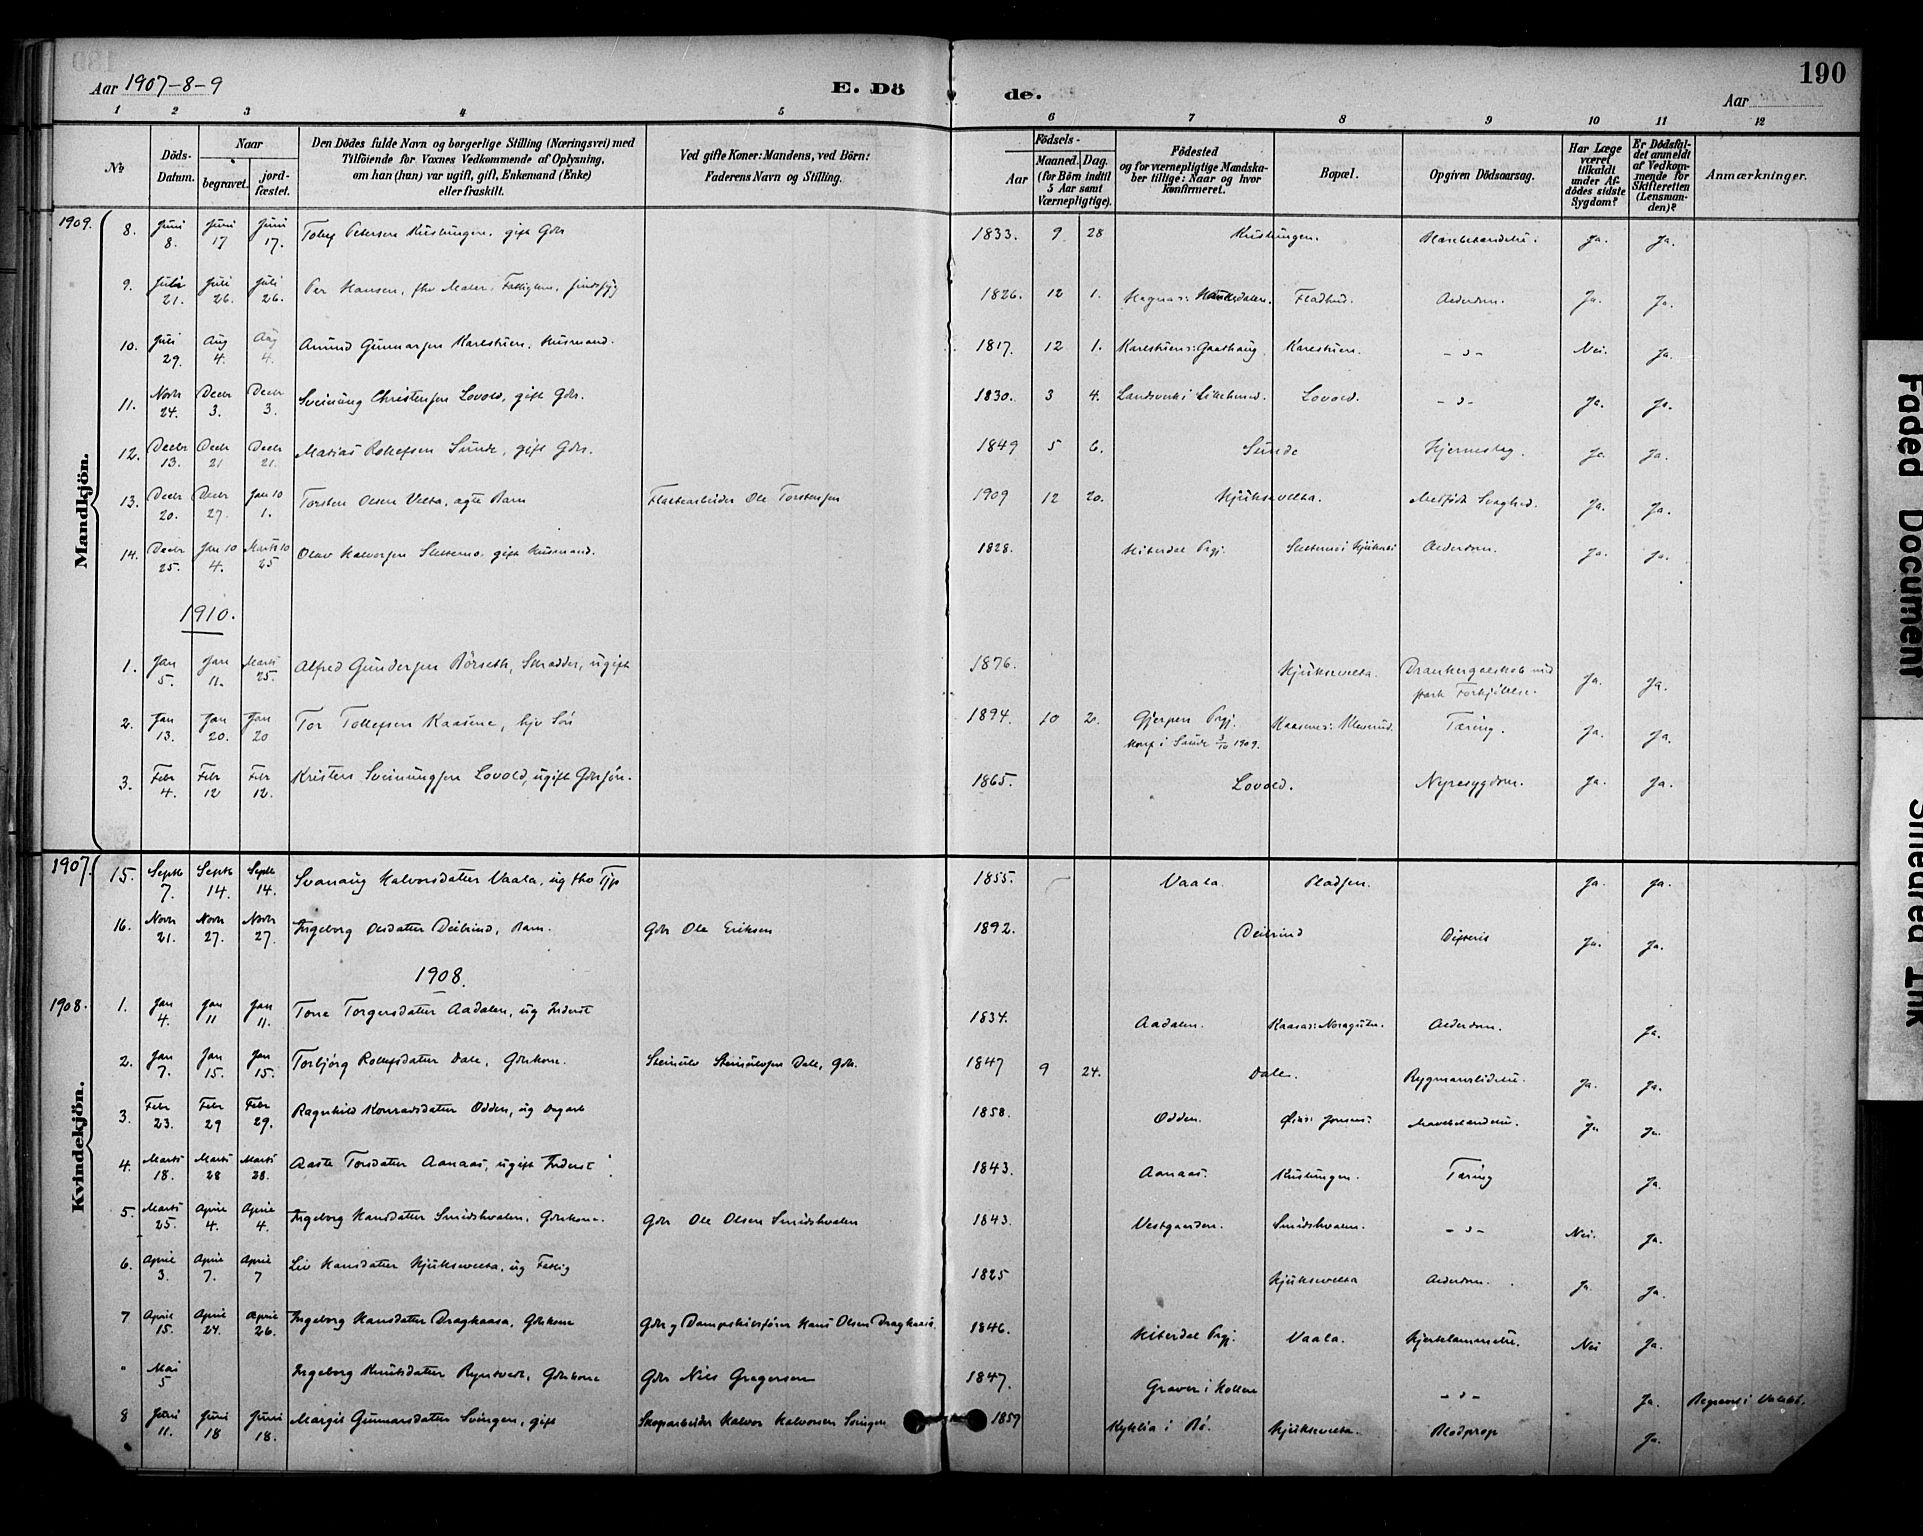 190
Aar 1907-8-9
E. Dö
de.
Aar
1 2 3 4 5 6 7 8 9 10 11 12
No
Döds-Datum.
Naar
begravet.
jord-fæstet.
Den Dödes fulde Navn og borgerlige Stilling (Næringsvei) med
Tilföiende for Voxnes Vedkommende af Oplysning,
om han (hun) var ugift, gift, Enkemand (Enke)
eller fraskilt.
Ved gifte Koner: Mandens, ved Börn:
Faderens Navn og Stilling.
Födsels-
Aar
Maaned. Dag.
(for Börn indtil
5 Aar samt
Værnepligtige).
Födested
og for værnepligtige Mandska-
ber tillige: Naar og hvor
konfirmeret.
Bopæl.
Opgiven Dödsaarsag.
Har Læge
været
tilkaldt
under Af-
dödes sidste
Sygdom?
Er Dödsfal-
det anmeldt
af Vedkom-
mende for
Skifteretten
(Lensman-
den)?
Anmærkninger.
Mandkjön.
1909. 8. Juni 8. Juni 17 Juni 17. Petersen gift Gdr 1833. 9 28 Ja. Ja.
9. Juli 21. Juli 26. Juli 26. Per Hansen, 1826. 12 1. Alderdom. Ja. Ja.
10. Juli 29. Aug 4. Aug 4. Amund Gunnarsen Husmand. 1817. 12 1. - " - Nei. Ja.
11. Novbr 24. Decbr 3. Decbr 3. Sveinung Christensen Lovold, gift Gdr. 1830. 3 4. Lovold. - " - Ja. Ja.
12. Decbr 13. Decbr 21 Decbr 21. Matias Rollefsen Sunde, gift Gdr. 1849 5 6. Sunde Hjerneslag. Ja. Ja.
13. Decbr 20. Decbr 27. Jan 10 1. Torsten Olsen Velta, ægte Barn Ole Torstensen 1909 12 20. Hjuksevelta. Medfødt Svaghed. Ja. Ja.
14. Decbr 25. Jan 10 4. Marts 10 25 Olav Halvorsen gift Husmand. 1828. Hiterdal Prgj. Alderdom. Ja. Ja.
1910.
1. Jan 5. Jan 11. Marts 25. Alfred Gundersen Börseth, Skrædder, ugift 1876. Hjuksevelta. Drankergalskab med stærk Forkjölelse. Ja. Ja.
2. Jan 13. Jan 20. Jan 20 Tor Tollefsen Kaasene, 1894. 10 2. Gjerpen Prgj. Konf i Sunde 3/10 1909. Tæring. Ja. Ja.
3. Febr 4. Febr 12 Febr 12. Kristen Sveinungsen Lovold, ugift Gdrsön. 1865. Lovold. Nyresygdom. Ja. Ja.
Kvindekjön.
1907. 15. Septb 7. Septb 14. Septb 14. Svanaug Halvorsdatter Vaala, ug 1855. Vaala. Pladsen. Ja. Ja.
16. Novbr 21. Novbr 27. Novbr 27. Ingeborg Olsdatter Barn. Gdr Ole Eriksen 1892. Difteri Ja. Ja.
1908.
1908. 1. Jan 4. Jan 11 Jan 11. Tone Torgersdatter Aadalen, ug Inderst 1834. Aadalen. Alderdom. Ja.
2. Jan 7. Jan 15. Jan 15. Torbjörg Rollefsdatter Dale, Gdrkone. Steinulv Steinulvsen Dale, Gdr. 1847 9 24. Dale. Rygmarvslidelse. Ja. Ja.
3. Febr 23. Febr 29 Febr 29. Ragnhild Konradsdatter Odden, ug 1858. Odden. Ja Ja.
4. Marts 18. Marts 28 Marts 28. Aaste Torsdatter Aanaas, ugift Inderst 1843. Aanaas. Tæring Ja.
5. Marts 25. April 4. April 4. Ingeborg Hansdatter Smidshvalen, Gdrkone. Gdr Ole Olsen Smidshvalen 1843. Vestgaarden. Smidshvalen. - " - Nei. Ja.
6. April 3. April 7. April 7 Liv Hansdatter Hjuksevelta, ug Fattig 1825 Hjuksevelta Alderdom. Ja. Ja.
7 April 15. April 24. April 26. Ingeborg Hansdatter Draghaasa, Gdrkone Gdr og Dampskibsförer Hans Olsen 1846. Hiterdal Prgj. Vaala. Hjertelammelse. Nei Ja.
" Mai 5 Ingeborg Knutsdatter Gdrkone Gdr Nils Gregersen 1847. Graver i - " - Ja. Begravet i
8 Juni 11. Juni 18 Juni 18. Margit Gunnarsdatter Svingen, gift Skogarbeider Halvor Halvorsen Svingen 1859 i Bö. Hjuksevelta. Blodprop Ja.
Faded Document
Smeared Ink